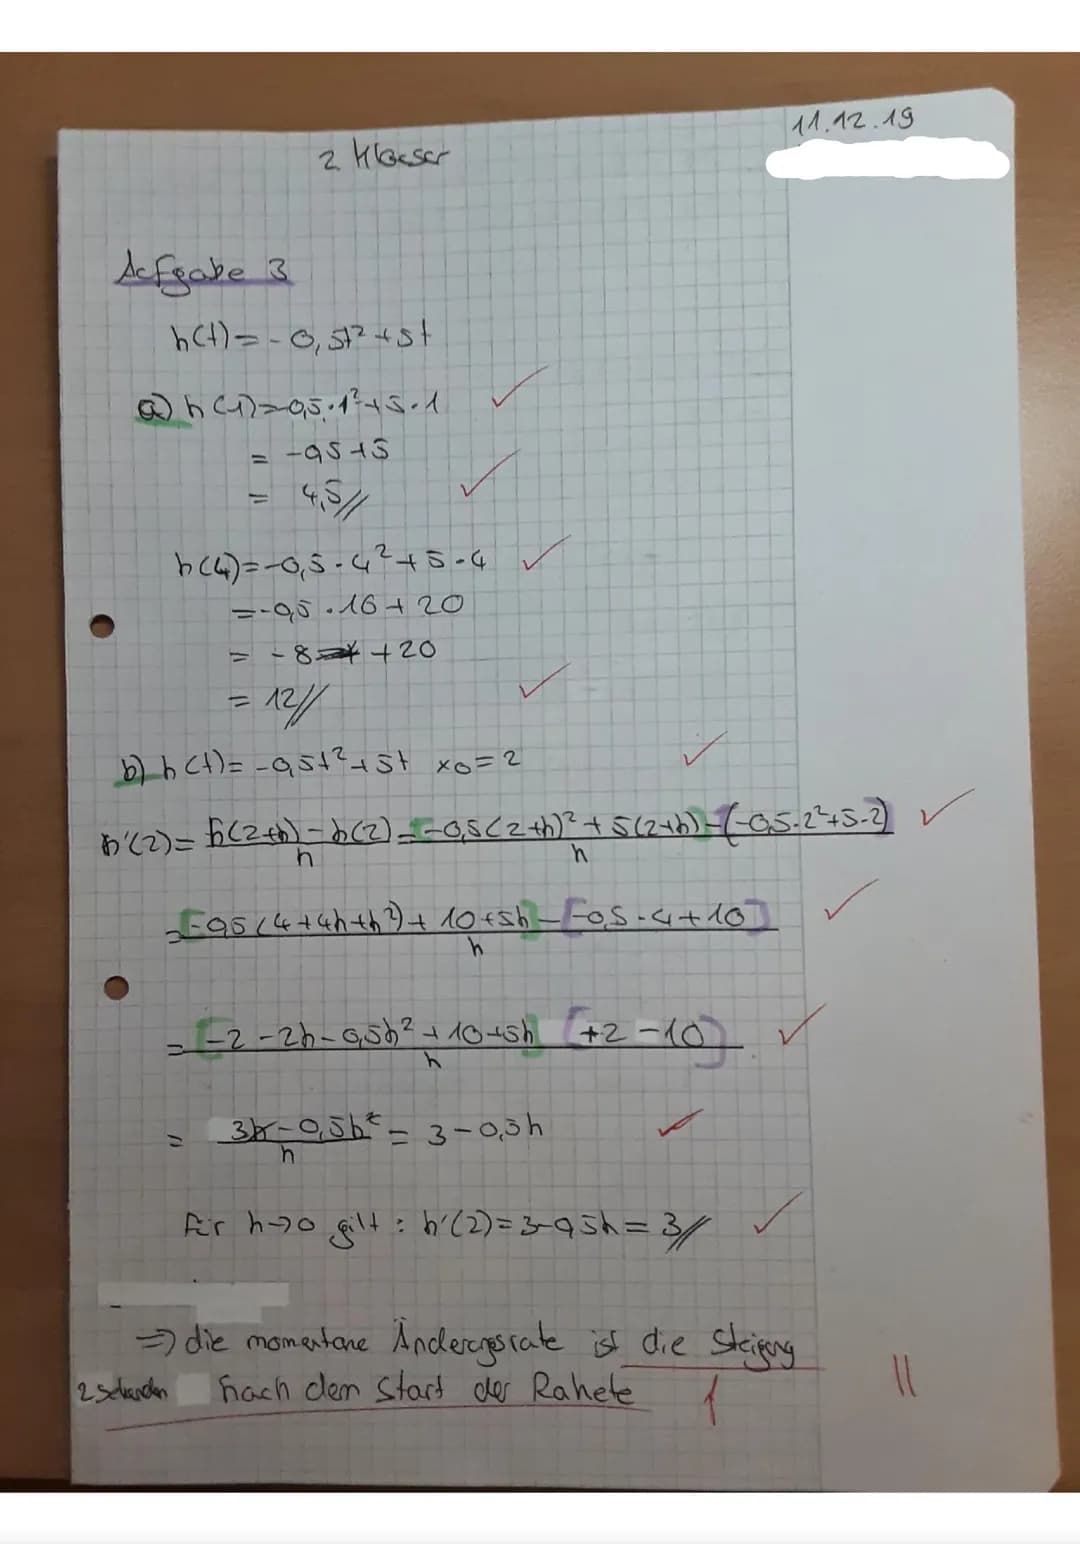 11.12.19
2 Klausur
Aufgabe 3
h(t)=-0,5t²+5t
a) h(1)=-0,5·1²+5·1
= -0,5+5
= 4,5//
h(4)=-0,5·4²+5·4
=-0,5·16+20
= -8 +20
= 12//
b) h(t)=-0,5t²+5t x0=2
h'(2)= (h(2+h)-h(2))/h = ([-0,5(2+h)²+5(2+h)]-(-0,5·2²+5·2))/h
= ([-0,5(4+4h+h²)+10+5h]-[-0,5·4+10])/h
= ([-2-2h-0,5h²+10+5h] [+2-10])/h
= (3h-0,5h²)/h = 3-0,5h
Für h→0 gilt: h'(2)=3-0,5h=3//
=> die momentane Änderungsrate ist die Steigung
2 Sekunden nach dem Start der Rakete
11